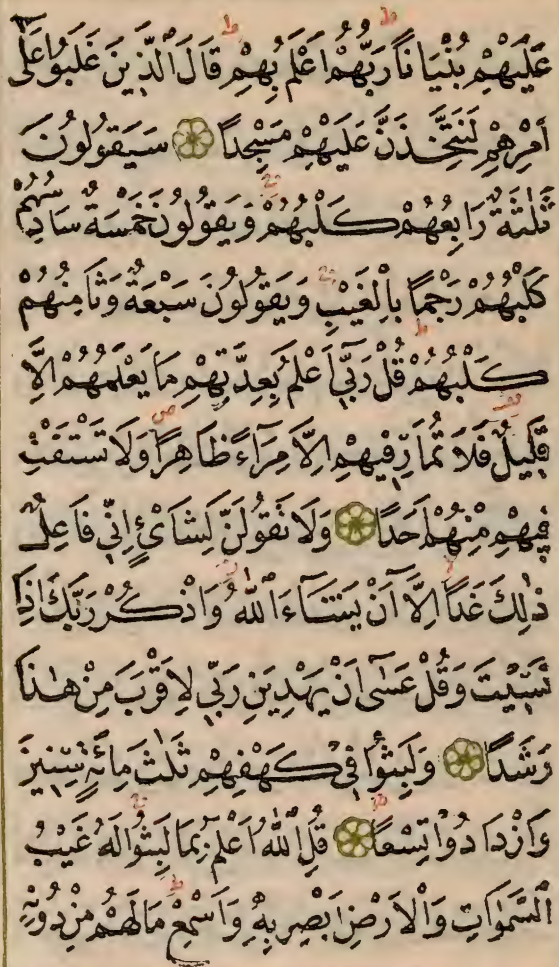 عَلَيْهِمْ بُنْيَانًا رَبُّهُمْ اَعْلَمُ بِهِمْ قَالَ الَّذِينَ غَلَبُوا عَلٰٓى
اَمْرِهِمْ لَنَتَّخِذَنَّ عَلَيْهِمْ مَسْجِدًا سَيَقُولُونَ
ثَلٰثَةٌ رَابِعُهُمْ كَلْبُهُمْ وَيَقُولُونَ خَمْسَةٌ سَادِسُهُمْ
كَلْبُهُمْ رَجْمًا بِالْغَيْبِ وَيَقُولُونَ سَبْعَةٌ وَثَامِنُهُمْ
كَلْبُهُمْ قُلْ رَبِّٓى اَعْلَمُ بِعِدَّتِهِمْ مَا يَعْلَمُهُمْ اِلَّا
قَلِيلٌ فَلَا تُمَارِ فِيهِمْ اِلَّا مِرَٓاءً ظَاهِرًا وَلَا تَسْتَفْتِ
فِيهِمْ مِنْهُمْ اَحَدًا وَلَا تَقُولَنَّ لِشَا۟ىْءٍ اِنِّى فَاعِلٌ
ذٰلِكَ غَدًا اِلَّٓا اَنْ يَشَٓاءَ اللّٰهُ وَاذْكُرْ رَبَّكَ اِذَا
نَسِيتَ وَقُلْ عَسٰٓى اَنْ يَهْدِيَنِ رَبِّى لِاَقْرَبَ مِنْ هٰذَا
رَشَدًا وَلَبِثُوا فِى كَهْفِهِمْ ثَلٰثَ مِائَةٍ سِنِينَ
وَازْدَادُوا تِسْعًا قُلِ اللّٰهُ اَعْلَمُ بِمَا لَبِثُوا لَهُ غَيْبُ
السَّمٰوَاتِ وَالْاَرْضِ اَبْصِرْ بِهِ وَاَسْمِعْ مَا لَهُمْ مِنْ دُونِهِ